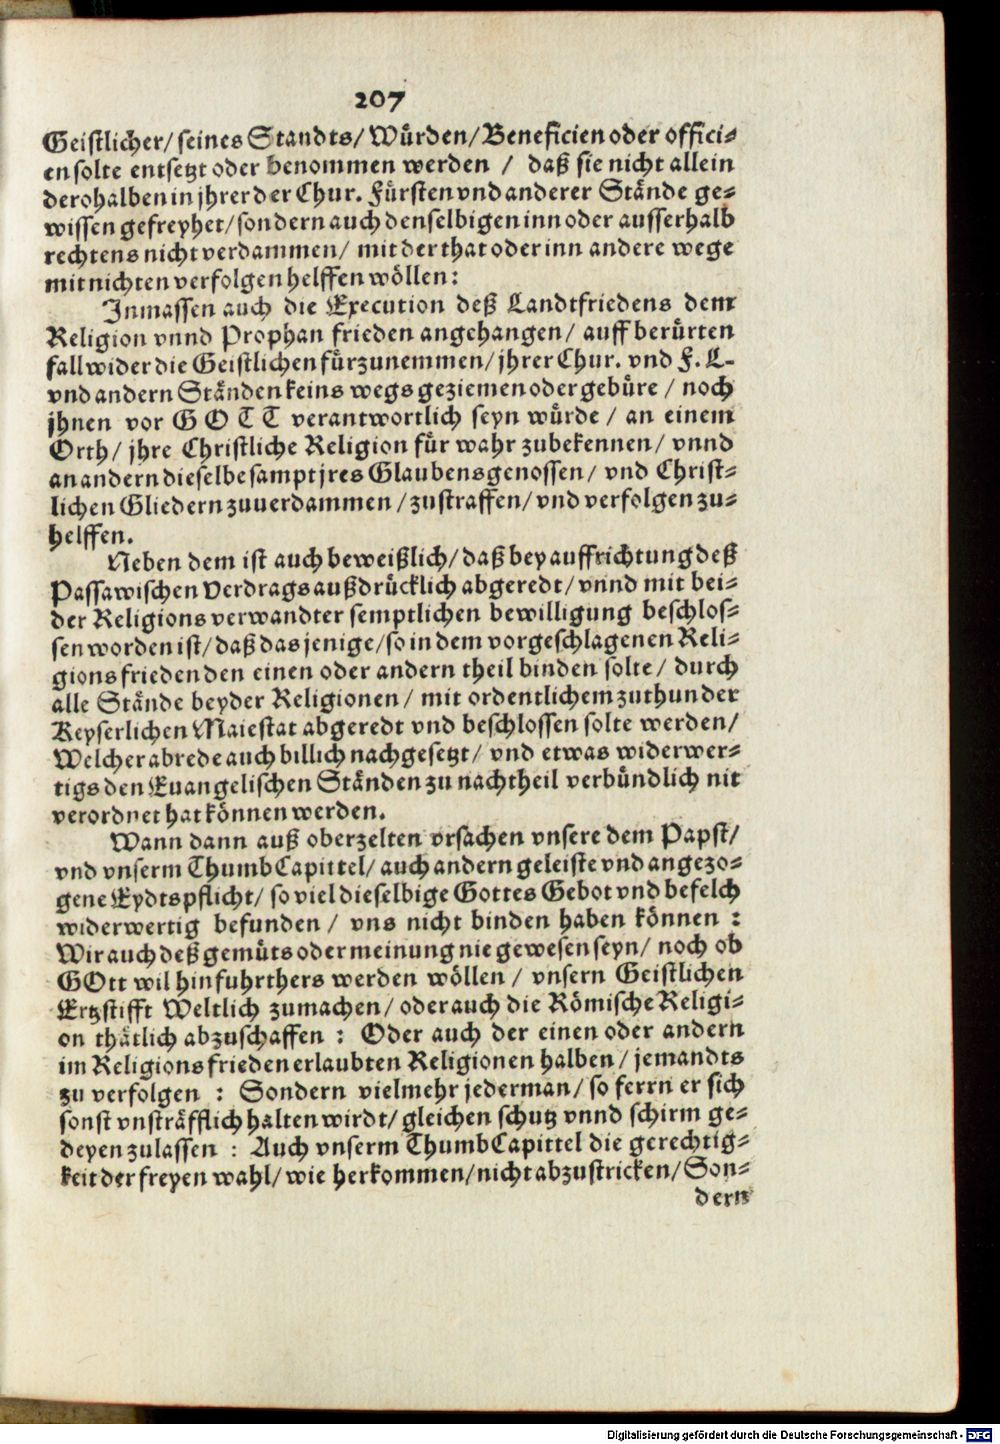 207
Geistlicher/ seines Standts/ Würden/ Beneficien oder offici-
en solte entsetzt oder benommen werden / daß sie nicht allein
derohalben in jhrer der Chur. Fürsten vnd anderer Stände ge-
wissen gefreyhet/ sondern auch denselbigen inn oder ausserhalb
rechtens nicht verdammen/ mit der that oder inn andere wege
mit nichten verfolgen helffen wöllen:
Inmassen auch die Execution deß Landtfriedens dem
Religion vnnd Prophan frieden angehangen/ auff berürten
fall wider die Geistlichen fürzunemmen/ jhrer Chur. vnd F. L.
vnd andern Ständen keins wegs geziemen oder gebüre / noch
jhnen vor GOTT verantwortlich seyn würde / an einem
Orth/ jhre Christliche Religion für wahr zubekennen/ vnnd
an andern dieselbe sampt jres Glaubensgenossen/ vnd Christ-
lichen Gliedern zuuerdammen/ zustraffen/ vnd verfolgen zu-
helffen.
Neben dem ist auch beweißlich/ daß bey auffrichtung deß
Passawischen Verdrags außdrücklich abgeredt/ vnnd mit bei-
der Religions verwandter semptlichen bewilligung beschlos-
sen worden ist/ daß das jenige/ so in dem vorgeschlagenen Reli-
gions frieden den einen oder andern theil binden solte/ durch
alle Stände beyder Religionen/ mit ordentlichem zuthun der
Keyserlichen Maiestat abgeredt vnd beschlossen solte werden/
Welcher abrede auch billich nachgesetzt/ vnd etwas widerwer-
tigs den Euangelischen Ständen zu nachtheil verbündlich nit
verordnet hat können werden.
Wann dann auß oberzelten vrsachen vnsere dem Papst/
vnd vnserm ThumbCapittel/ auch andern geleiste vnd angezo-
gene Eydtspflicht/ so viel dieselbige Gottes Gebot vnd befelch
widerwertig befunden / vns nicht binden haben können :
Wir auch deß gemüts oder meinung nie gewesen seyn/ noch ob
GOtt wil hinfuhrthers werden wöllen / vnsern Geistlichen
Ertzstifft Weltlich zumachen/ oder auch die Römische Religi-
on thätlich abzuschaffen : Oder auch der einen oder andern
im Religions frieden erlaubten Religionen halben/ jemandts
zu verfolgen : Sondern vielmehr jederman/ so ferrn er sich
sonst vnsträfflich halten wirdt/ gleichen schutz vnnd schirm ge-
deyen zulassen : Auch vnserm ThumbCapittel die gerechtig-
keit der freyen wahl/ wie herkommen/ nicht abzustricken/ Son-
dern
Digitalisierung gefördert durch die Deutsche Forschungsgemeinschaft - DFG